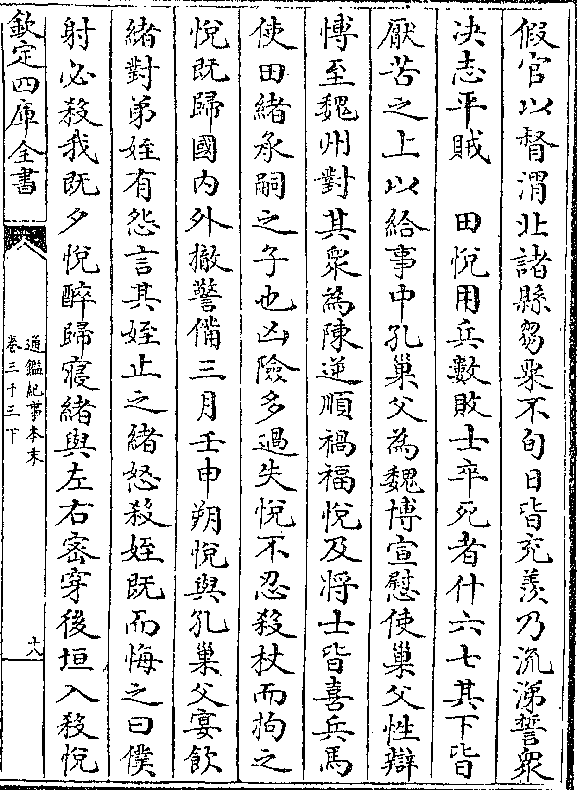 假官以督渭北諸縣芻粟不旬日皆充羨乃流涕誓衆
决志平賊　田悅用兵數敗士卒死者什六七其下皆
厭苦之上以給事中孔巢父為魏博宣慰使巢父性辯
博至魏州對其衆為陳逆順禍福悅及将士皆喜兵馬
使田緒承嗣之子也凶險多過失悅不忍殺杖而拘之
悅既歸國內外撤警備三月壬申朔悅與孔巢父宴飲
緒對弟姪有怨言其姪止之緒怒殺姪既而悔之曰僕
射必殺我既夕悅醉歸寢緒與左右密穿後垣入殺悅
欽定四庫全書
通鑑紀事本末
卷三十三下
十八